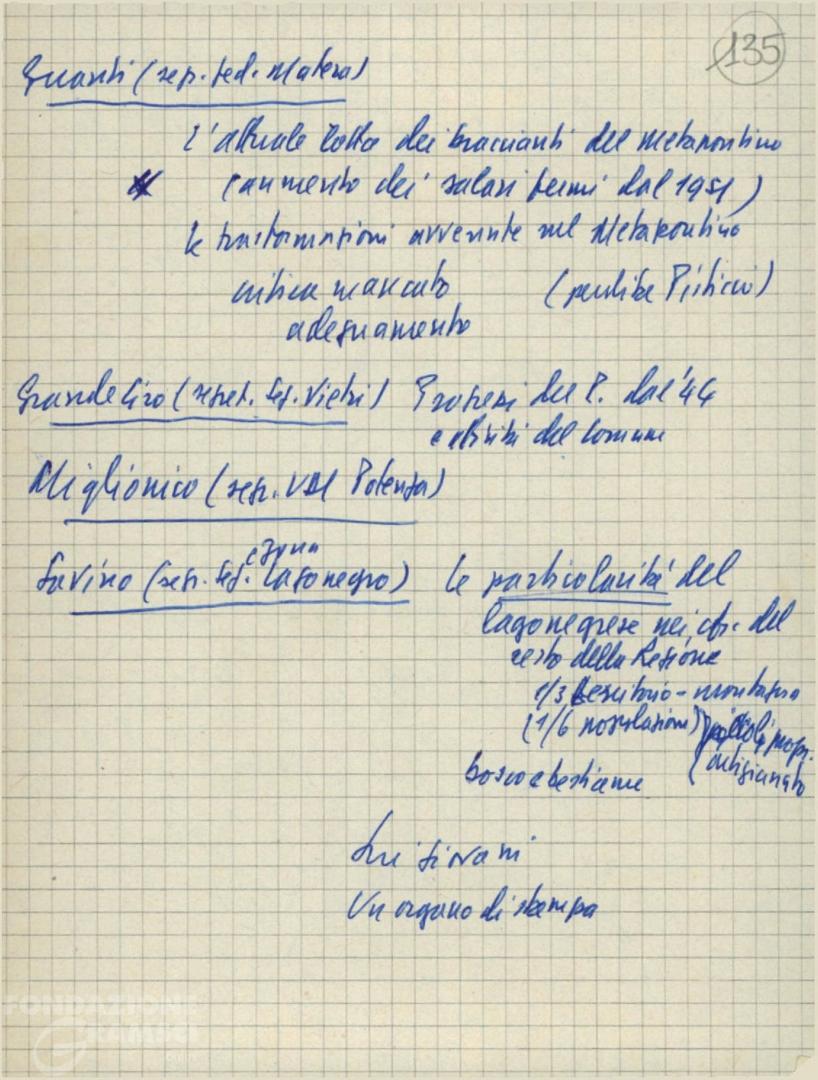 135
Guanti (segr. fed. Matera)
L'attuale lotta dei braccianti del Metapontino
(aumento dei salari fermi dal 1951)
le trasformazioni avvenute nel Metapontino
critica mancato (perdita Pisticci)
adeguamento
Grande Ciro (segret. sez. Vietri) Progressi del P. dal '44
e attività del Comune
Miglionico (segr. UDI Potenza)
Savino (segr. sez. e zona Lagonegro) le particolarità del
lagonegrese nei cfr. del
resto della Regione
1/3 territorio - montagna
(1/6 popolazione) piccoli propr.
artigianato
bosco e bestiame
Sui giovani
Un organo di stampa
FONDAZIONE
GRAMSCI